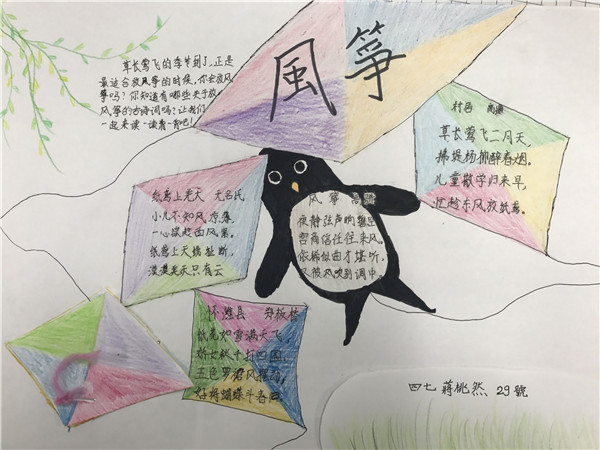 風箏
草长莺飞的季节到了，正是
最适合放风筝的时候，你会放风
筝吗？你知道有哪些关于放
风筝的古诗词吗？让我们
一起来读一读背一背吧！
村居 高鼎
草长莺飞二月天，
拂堤杨柳醉春烟。
儿童散学归来早，
忙趁东风放纸鸢。
纸鸢上老天 无名氏
小儿不知风凉薄
一心欲趁西风紧，
纸鸢上天线扯断，
漠漠老天只有云
风筝 高骈
夜静弦声响碧空
宫商信任往来风。
依稀似曲才堪听，
又被风吹别调中。
怀潍县 郑板桥
纸花如雪满天飞，
娇女秋千打四围，
五色罗裙风摆动，
好将蝴蝶斗春归。
四七 蔣桃然 29號